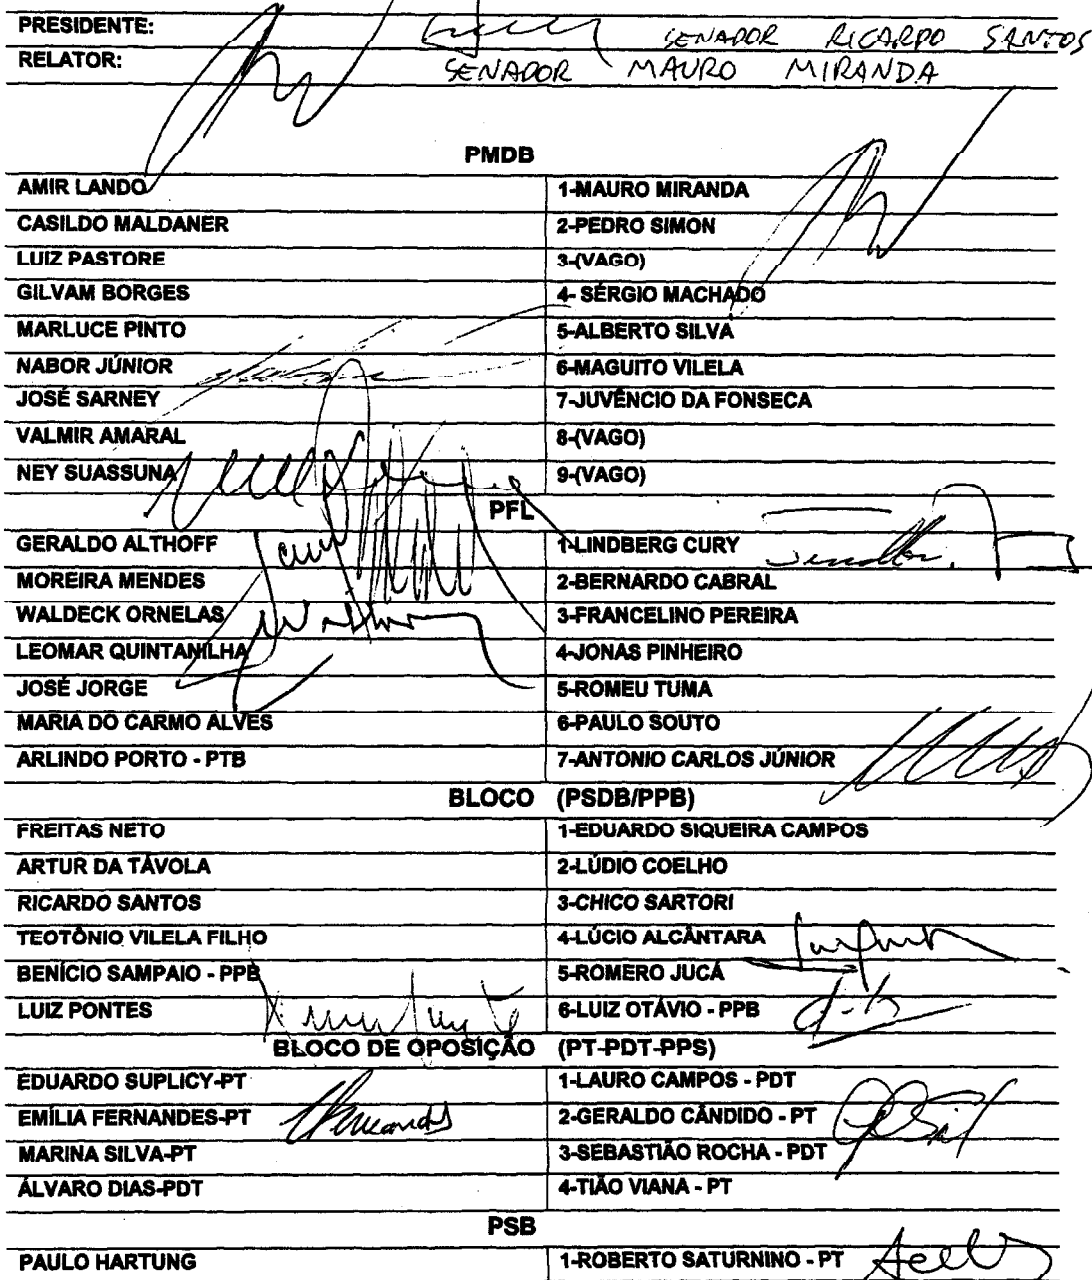 PRESIDENTE: SENADOR RICARDO SANTOS
RELATOR: SENADOR MAURO MIRANDA
PMDB
AMIR LANDO 1-MAURO MIRANDA
CASILDO MALDANER 2-PEDRO SIMON
LUIZ PASTORE 3-(VAGO)
GILVAM BORGES 4- SÉRGIO MACHADO
MARLUCE PINTO 5-ALBERTO SILVA
NABOR JÚNIOR 6-MAGUITO VILELA
JOSÉ SARNEY 7-JUVÊNCIO DA FONSECA
VALMIR AMARAL 8-(VAGO)
NEY SUASSUNA 9-(VAGO)
PFL
GERALDO ALTHOFF 1-LINDBERG CURY
MOREIRA MENDES 2-BERNARDO CABRAL
WALDECK ORNELAS 3-FRANCELINO PEREIRA
LEOMAR QUINTANILHA 4-JONAS PINHEIRO
JOSÉ JORGE 5-ROMEU TUMA
MARIA DO CARMO ALVES 6-PAULO SOUTO
ARLINDO PORTO - PTB 7-ANTONIO CARLOS JÚNIOR
BLOCO (PSDB/PPB)
FREITAS NETO 1-EDUARDO SIQUEIRA CAMPOS
ARTUR DA TÁVOLA 2-LÚDIO COELHO
RICARDO SANTOS 3-CHICO SARTORI
TEOTÔNIO VILELA FILHO 4-LÚCIO ALCÂNTARA
BENÍCIO SAMPAIO - PPB 5-ROMERO JUCÁ
LUIZ PONTES 6-LUIZ OTÁVIO - PPB
BLOCO DE OPOSIÇÃO (PT-PDT-PPS)
EDUARDO SUPLICY-PT 1-LAURO CAMPOS - PDT
EMÍLIA FERNANDES-PT 2-GERALDO CÂNDIDO - PT
MARINA SILVA-PT 3-SEBASTIÃO ROCHA - PDT
ÁLVARO DIAS-PDT 4-TIÃO VIANA - PT
PSB
PAULO HARTUNG 1-ROBERTO SATURNINO - PT